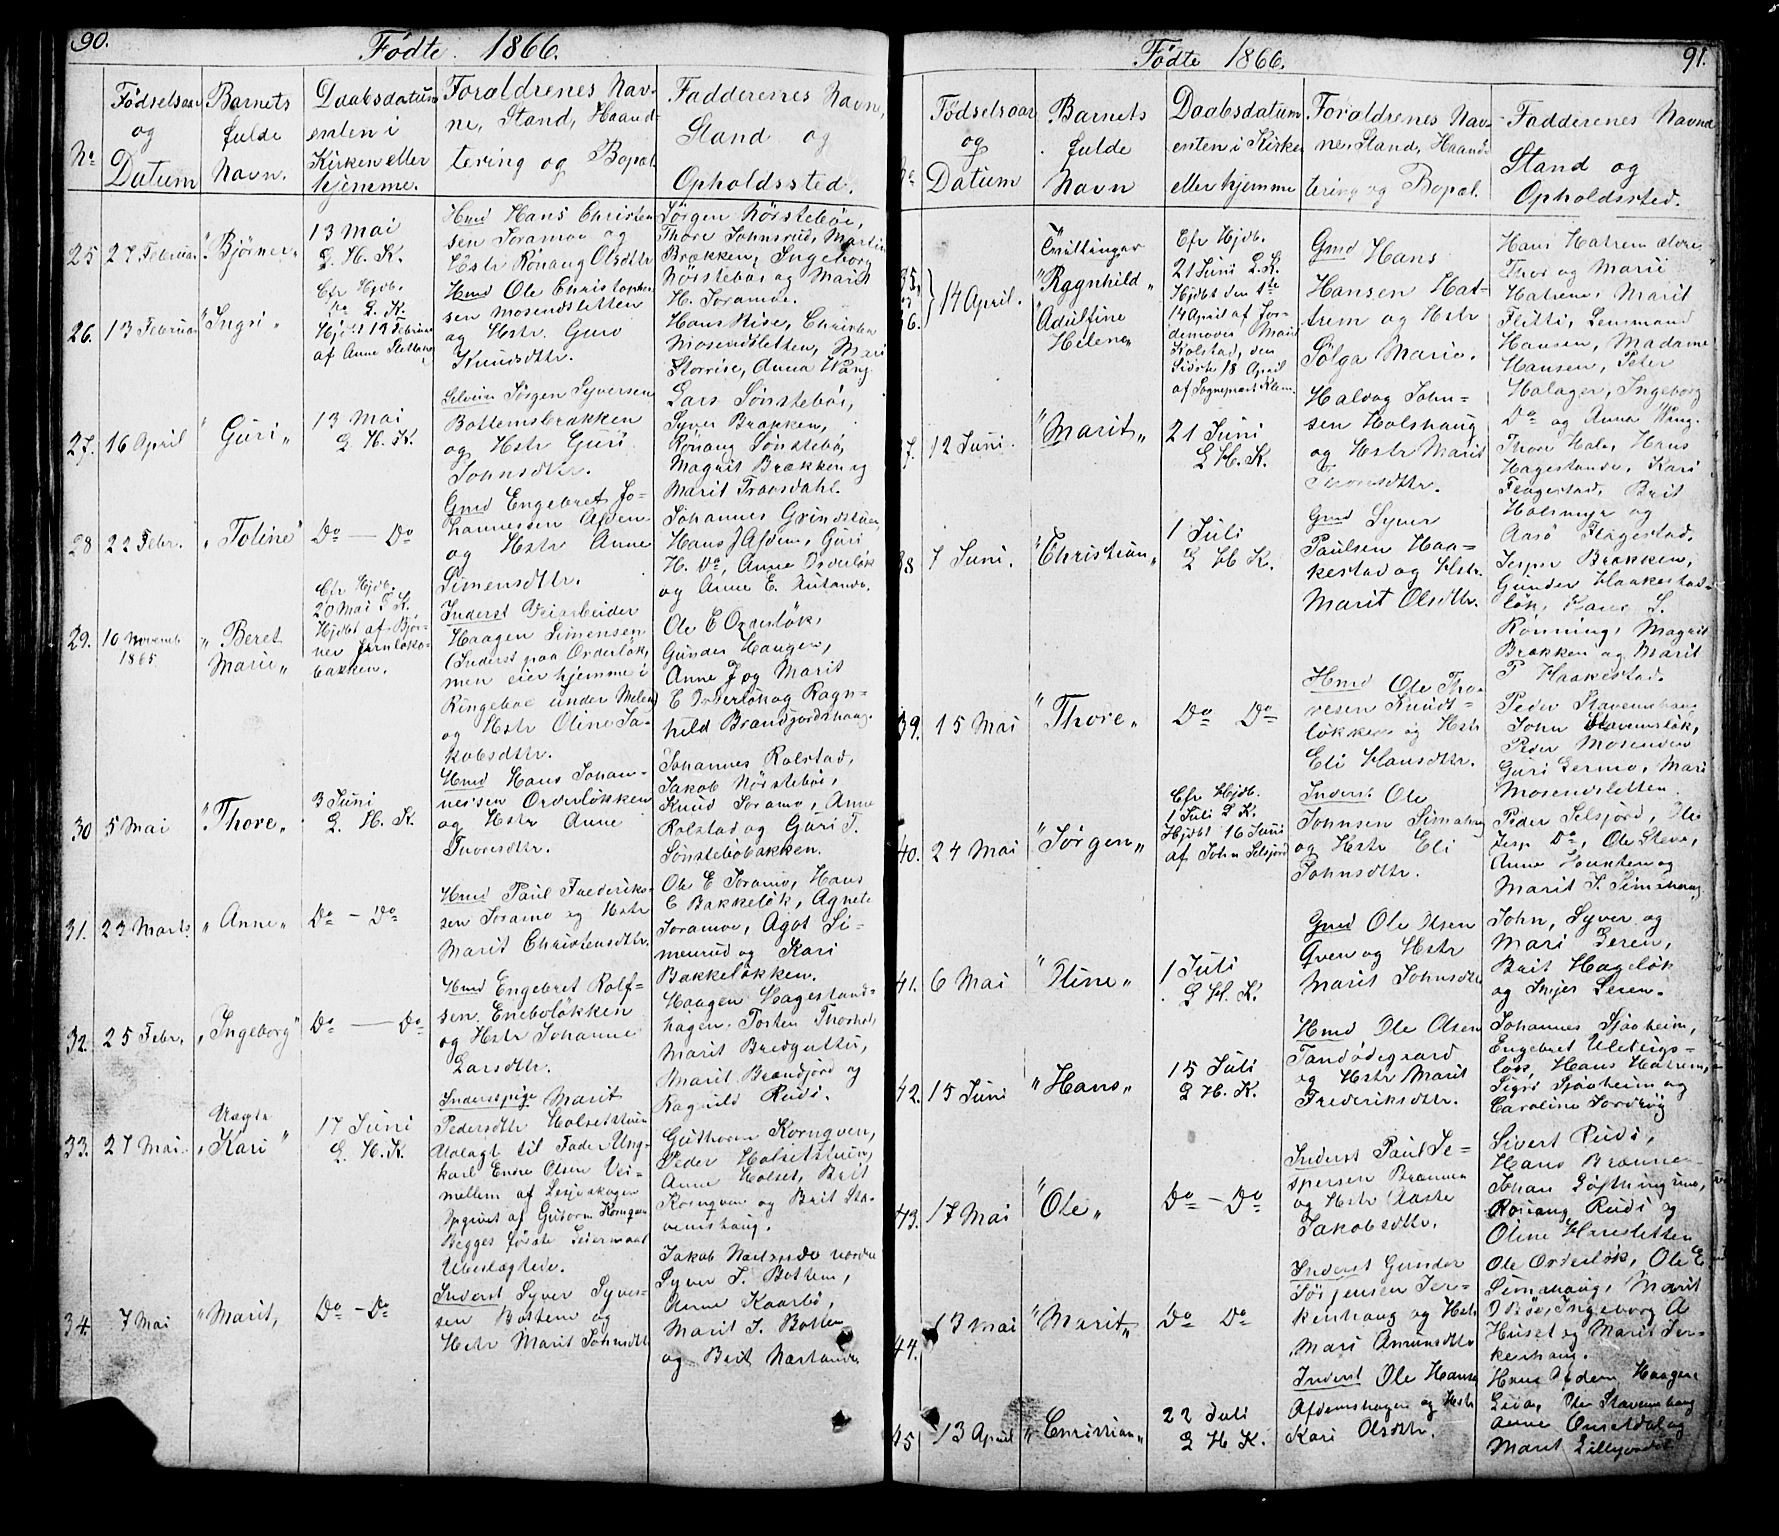 90.
Födte 1866.
No
Födselsaar
og
Datum
Barnets
fulde
Navn.
Daabsdatum
enten i
Kirken eller
hjemme.
Foraldrenes Nav-
ne, Stand, Haand-
tering og Bopal
Fadderenes Navn,
Stand og
Opholdssted.
25
27 Februar
"Björner"
13 Mai
L. H. K.
Hmd Hans Christen
sen Joramoe og
Hstr Rönaug Olsdtr
Jörgen Nörsteböe,
Thore Johnsrud, Martin
Brækken, Ingeborg
Nörstebøe og Marit
H. Joramoe.
26.
13 Februar
"Ingri"
Cfr Hjdb.
Do L. K.
Hjdbt 13 Februar
af Anne Sletten
Hmd Ole Christophe
sen Mosendsletten
og Hstr. Guro
Knudsdtr.
Hans Rise, Christen
Mosendsletten, Mari
Storrise, Anna Wang.
27.
16 April
"Guri"
13 Mai
L. H. K.
Selveier Jörgen Syversen
Bottemsbrækken
og Hstr Guri
Johnsdtr.
Lars Sönsteböe,
Syver Brækken,
Rönaug Sönstebö,
Magrit Brækken og
Marit Traasdahl.
28
22 Febr.
"Toline"
Do — Do
Gmd Engebret Jo-
hannessen Afdem
og Hstr Anne
Simensdtr.
Johannes Grindstuen,
Hans J Afdem, Guri
H. Do, Anne Orderlök
og Anne E. Rutande.
29.
10 Novemb
1865.
"Beret
Marie"
Cfr Hjdb.
20 Mai L. K.
Hjdbt af Björ-
ner Jernløks-
bakken.
Inderst Veiarbeider
Haagen Simensen
(Inderst paa Orderløk,
men eier hjemme i
Ringeboe under Melem)
og Hstr Oline Ja-
kobsdtr.
Ole E Orderlök,
Gunder Haugen,
Anne J og Marit
E Orderlök og Ragn-
hild Brandjordshaug.
30
5 Mai
"Thore"
3 Juni
L. H. K.
Hmd Hans Johan-
nessen Orderlökken
og Hstr Anne
Thoresdtr.
Johannes Rolstad,
Jakob Nörstebøe,
Knud Joramo, Anne
Rolstad og Guri T.
Sönstebøbakken.
31.
23 Marts.
"Anne"
Do — Do
Hmd Paul Frederiks-
sen Joramo og Hstr
Marit Christensdtr.
Ole E Joramo, Hans
E Bakkelök, Agnete
Joramoe, Agot Si-
menrud og Kari
Bakkelökken.
32.
25 Febr,
"Ingeborg"
Do — Do
Hmd Engebret Rolf-
sen Eneboløkken
og Hstr Johanne
Larsdtr.
Haagen Hagestand-
hagen, Tosten Thorhol,
Marit Bredguttu,
Marit Brandjord og
Ragnild Rudi.
33.
27 Mai.
Uægte
"Kari"
17 Juni
L. H. K.
Inderstpige Marit
Pedersdtr Holsetstuen
Udlagt til Fader Ung-
karl Endre Olsen Vei-
mellem af Lesjeskogen
Opgivet af Gutorm Kornqven
Begges første Leiermaal
Ubeslægtede.
Guthorm Kornqven,
Peder Holsetstuen,
Anne Holset, Brit
Kornqven og Brit Sta-
vemshaug.
34.
7 Mai
"Marit,
Do – Do
Inderst Syver Syver-
sen Bottem og
Hstr Marit Johnsdtr
Jakob Nørlande nordre
Syver J. Bottem,
Anne Kaarbö,
Marit J. Bottem
og Brit Nørlande
91.
Födte 1866.
No
Födselsaar
og
Datum
Barnets
fulde
Navn
Daabsdatum
enten i Kirke
eller hjemme
Foraldrenes Nav-
ne, Stand, Haand-
tering og Bopal.
Fadderenes Navne
Stand og
Opholdssted.
35
36.
14 April.
Tvillinger
"Ragnhild"
"Adultine
Helene"
Cfr Hjdb.
21 Juni L. K.
Hjdbt den 1ste
14 April af Jor-
demoder Mari
Kolstad, den
Sidste 18 April
af Sogneprest Klem.
Gmd Hans
Hansen Hat-
trem og Hstr
Solga Marie.
Hans Hatrem, Lovise
Thor og Marie
Hatrem, Marit
Flitti, Lensmand
Hansen, Madame
Hansen, Peter
Holager, Ingeborg
Do og Anna Wang.
37.
12 Juni.
"Marit"
21 Juni
L H. K.
Halvog John-
sen Holshaug
og Hstr Marit
Thoresdtr.
Thore Hole, Hans
Hagestande, Kari
Flagestad, Brit
Holsmyr og
Aasö Flagestad.
38
7 Juni.
"Christian"
1 Juli
L H K.
Gmd Syver
Paulsen Haa-
kestad og Hstr.
Marit Olsdtr.
Jesper Brækken,
Gunder Haakestad-
lök, Hans S.
Rönning, Magrit
Brækken og Marit
P Haakestad.
39.
15 Mai
"Thore"
Do Do
Hmd Ole Tho-
resen Rundt-
løkken og Hstr
Eli Hansdtr.
Peder Stavemshaug
John Stavemslök,
Peder Mosenden
Guri Germo, Mari
Mosendsletten.
40.
24 Mai
"Jörgen"
Cfr Hjdb.
1 Juli L K.
Hjdbt 16 Juni
af John Selsjord
Inderst Ole
Johnsen Simahaug
og Hstr Eli
Johnsdtr.
Peder Selsjord, Ole
Jesp Do, Ole Steve,
Anne Haakten og
Marit J. Simehaug
41.
6 Mai
"Stine"
1 Juli
L H. K.
Gmd Ole Olsen
Qven og Hstr
Marit Johnsdtr
John, Syver og
Mari Leren,
Brit Hageløk
og Inger Leren.
42.
15 Juni
"Hans"
15 Juli
L H. K.
Hmd Ole Olsen
Tandödegaard
og Hstr Marit
Frederiksdtr.
Johannes Sjöoheim,
Engebret Uleteigs-
løk, Hans Hatrem,
Sigri Sjöoheim og
Caroline Jordhöy
43.
17 Mai
"Ole"
Do — Do
Inderst Paul Je-
spersen Brænnen
og Hstr Aaste
Jakobsdtr.
Sivert Rudi,
Hans Brænnen
Johan Löftingsmo,
Rönaug Rudi og
Oline Haresletten
44.
13 Mai
"Marit"
Do Do
Inderst Gunder
Jörgensen Jer-
kenhaug og Hstr
Mari Amundsdtr
Ole Orderlök, Ole E
Simehaug, Marit
O Bøe, Ingeborg A
Huset og Marit Jer-
kenhaug.
45
13 April
"Christian"
22 Juli
L H K.
Inderst Ole Hansen
Afdemshagen og Hstr
Kari Olsdtr.
Hans Afdem, Haagen
Lien, Ole Stavemshaug
Anne Onsetdal og
Marit Lillejordet